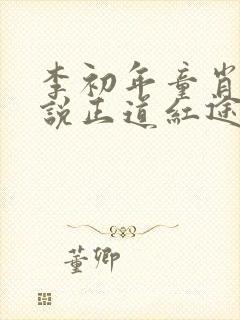 李初年童肖
說正道紅途
董卿